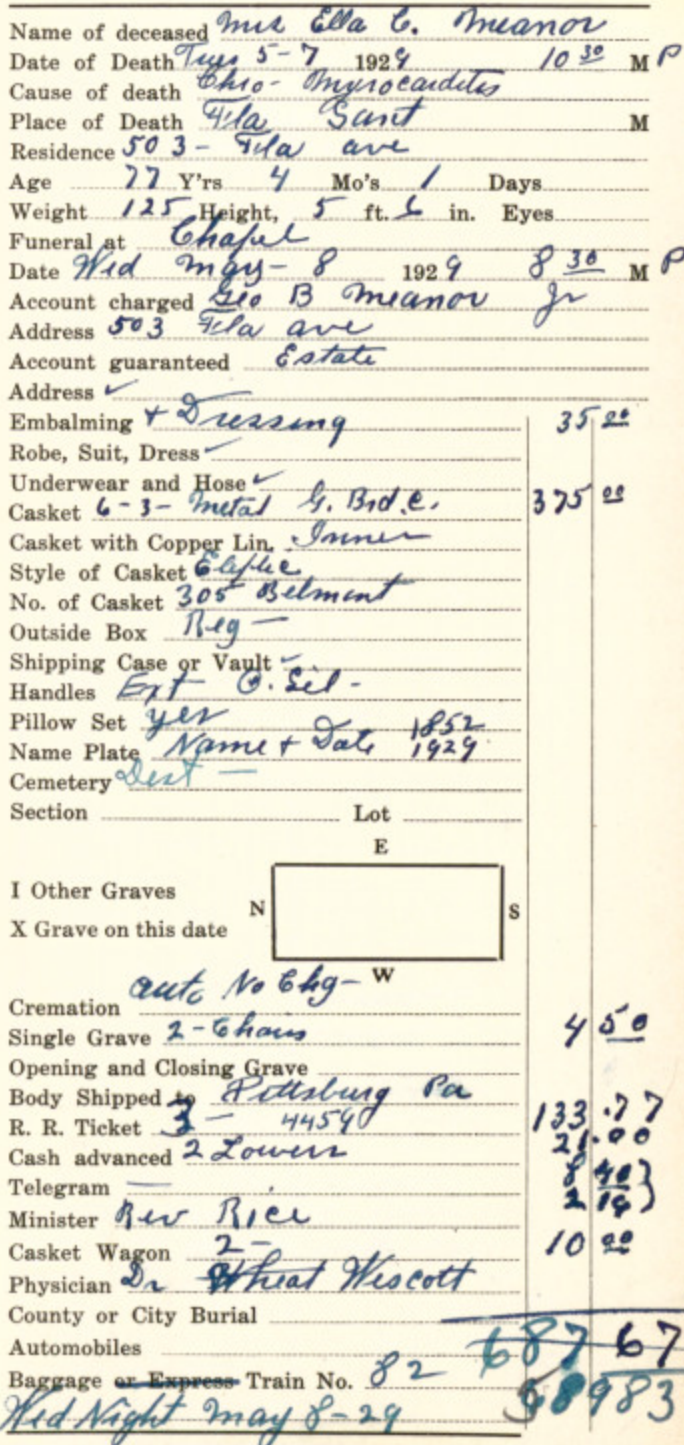 Name of deceased Mrs Ella C. Meanor
Date of Death Tues 5-7 1929 10 30 M P
Cause of death Chro- Myrocarditis
Place of Death Fla Sant M
Residence 503- Fla ave
Age 77 Y'rs 4 Mo's 1 Days
Weight 125 Height, 5 ft. 6 in. Eyes
Funeral at Chapel
Date Wed May- 8 1929 8 30 M P
Account charged Geo B Meanor Jr
Address 503 Fla ave
Account guaranteed Estate
Address ✓
Embalming + Dressing 35 00
Robe, Suit, Dress ✓
Underwear and Hose ✓
Casket 6-3- Metal G. Brd.C. 375 00
Casket with Copper Lin. Inner
Style of Casket
No. of Casket 305 Belmont
Outside Box Reg —
Shipping Case or Vault ✓
Handles Ext O. Sil-
Pillow Set yes
Name Plate Name + Date 1852 1929
Cemetery Dest —
Section Lot
E
I Other Graves
N S
X Grave on this date
W
auto No Chg-
Cremation
Single Grave 2-Chairs 4 50
Opening and Closing Grave
Body Shipped to Pittsburg Pa
R. R. Ticket 3 — 44590 133.77
Cash advanced 2 Lowers 21.00
Telegram — 8 40
Minister Rev Rice 2 16
Casket Wagon 2- 10 00
Physician Dr Wescott
County or City Burial
Automobiles 687 67
Baggage or Express Train No. 82 58983
Wed Night May 8-29